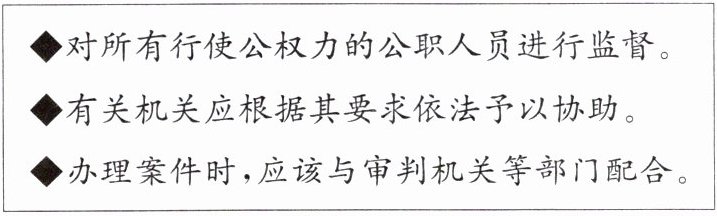 ◆对所有行使公权力的公职人员进行监督。
◆有关机关应根据其要求依法予以协助。
◆办理案件时,应该与审判机关等部门配合。